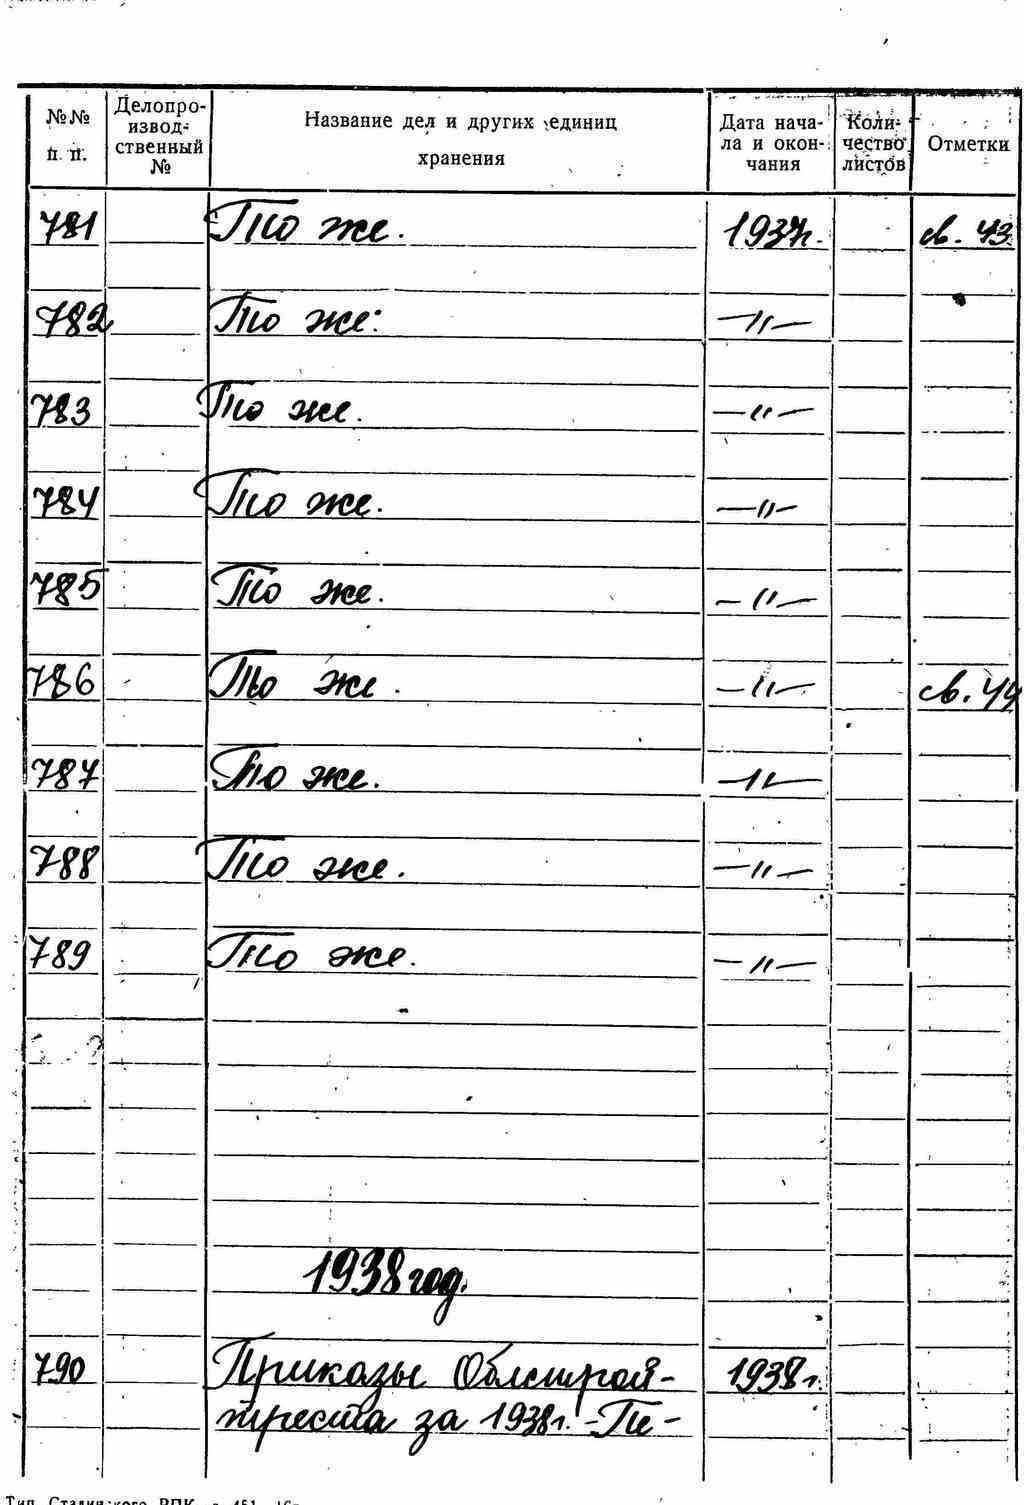 №№ п. п.
Делопро-
извод-
ственный
№
Название дел и других единиц
хранения
Дата нача-
ла и окон-
чания
Коли-
чество
листов
Отметки
781 То же. 1937г. св. 43
782 То же. —"—
783 То же. —"—
784 То же. —"—
785 То же. —"—
786 То же. —"— св. 44
787 То же. —"—
788 То же. —"—
789 То же. —"—
1938 год.
790 Приказы Облстрой- 1938г.
треста за 1938г. -Пе-
Тип. Сталинского РПК